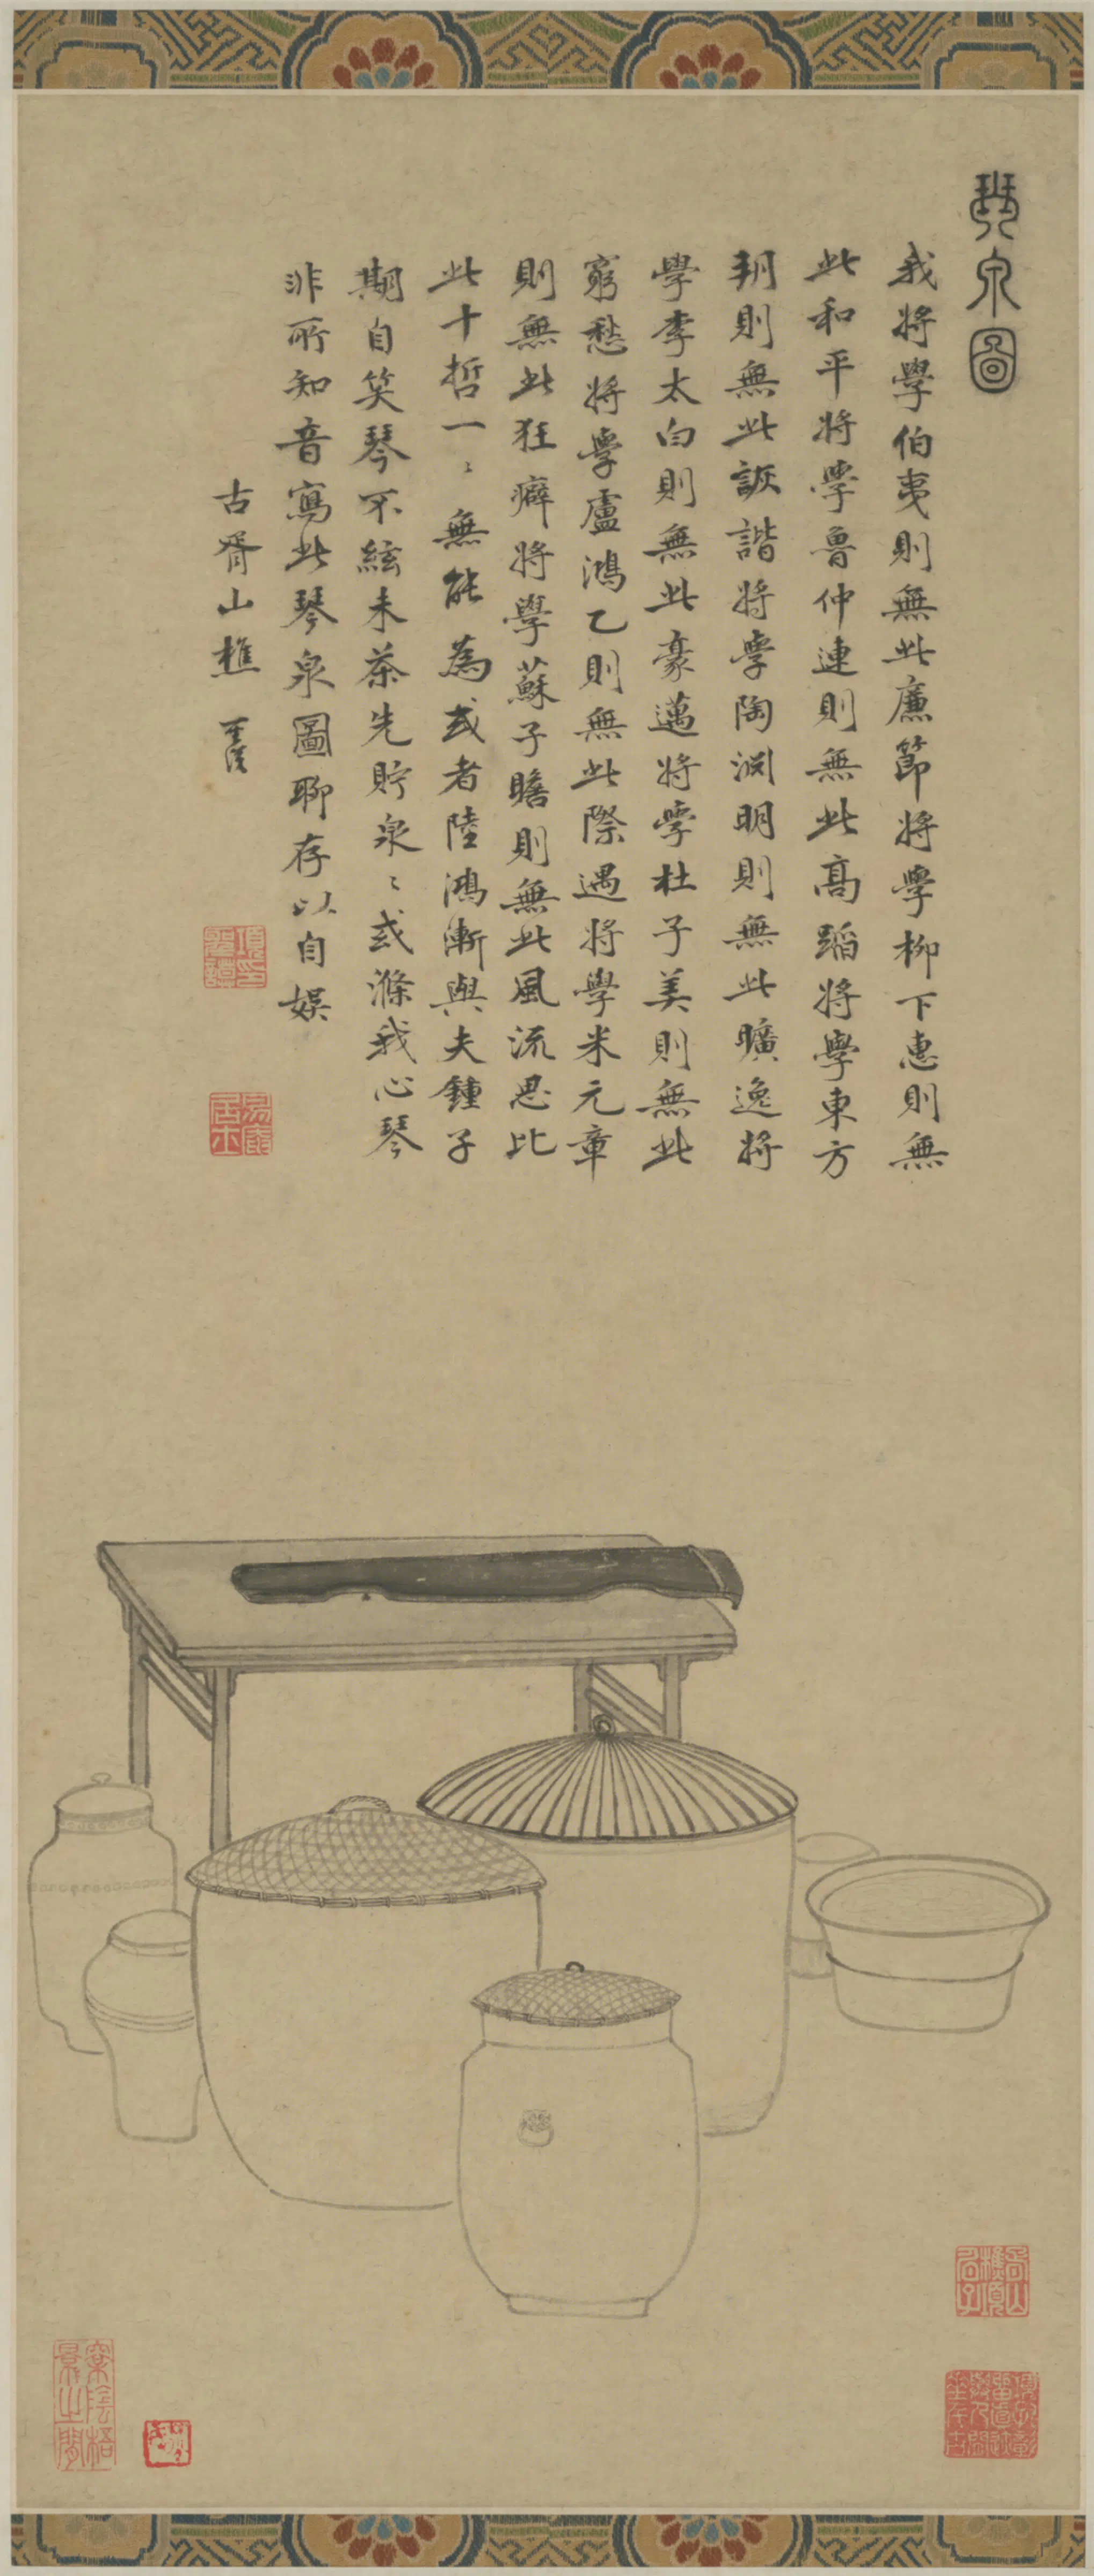 琴泉圖
我將學伯夷則無此廉節將學柳下惠則無
此和平將學魯仲連則無此高蹈將學東方
朔則無此詼諧將學陶淵明則無此曠逸將
學李太白則無此豪邁將學杜子美則無此
窮愁將學盧鴻乙則無此際遇將學米元章
則無此狂癖將學蘇子瞻則無此風流思比
此十哲一〻無能為或者陸鴻漸與夫鍾子
期自笑琴不絃未茶先貯泉〻或滌我心琴
非所知音寫此琴泉圖聊存以自娛
古胥山樵